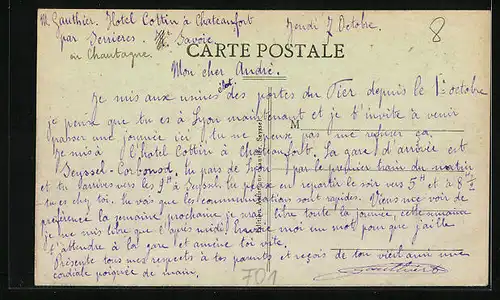 M. Gauthier. Hotel Cottin à Chateaufort
Jeudi 7 Octobre.
8
par Serrières. Hte Savoie
en Chautagne.
CARTE POSTALE
Mon cher André.
Je suis aux usines des portes du Fier depuis le 1er octobre
je pense que tu es à Lyon maintenant et je t'invite à venir
M
passer une journée ici tu ne penses pas me refuser ça.
Je suis à l'hotel Cottin à Chateaufort. La gare d'arrivée est
Seyssel-Corbonod. tu pars de Lyon par le premier train du matin
et tu arrives vers les 9h à Seyssel. tu peux en repartir le soir vers 5h et à 8h
tu es chez toi. Tu vois que les communications sont rapides. Viens me voir de
préférence la semaine prochaine je serai libre toute la journée, cette semaine
je ne suis libre que l'après midi. Envoie moi un mot pour que j'aille
t'attendre à la gare et amène toi vite.
Présente tous mes respects à tes parents et reçois de ton vieil ami une
cordiale poignée de main.
Gauthier
701